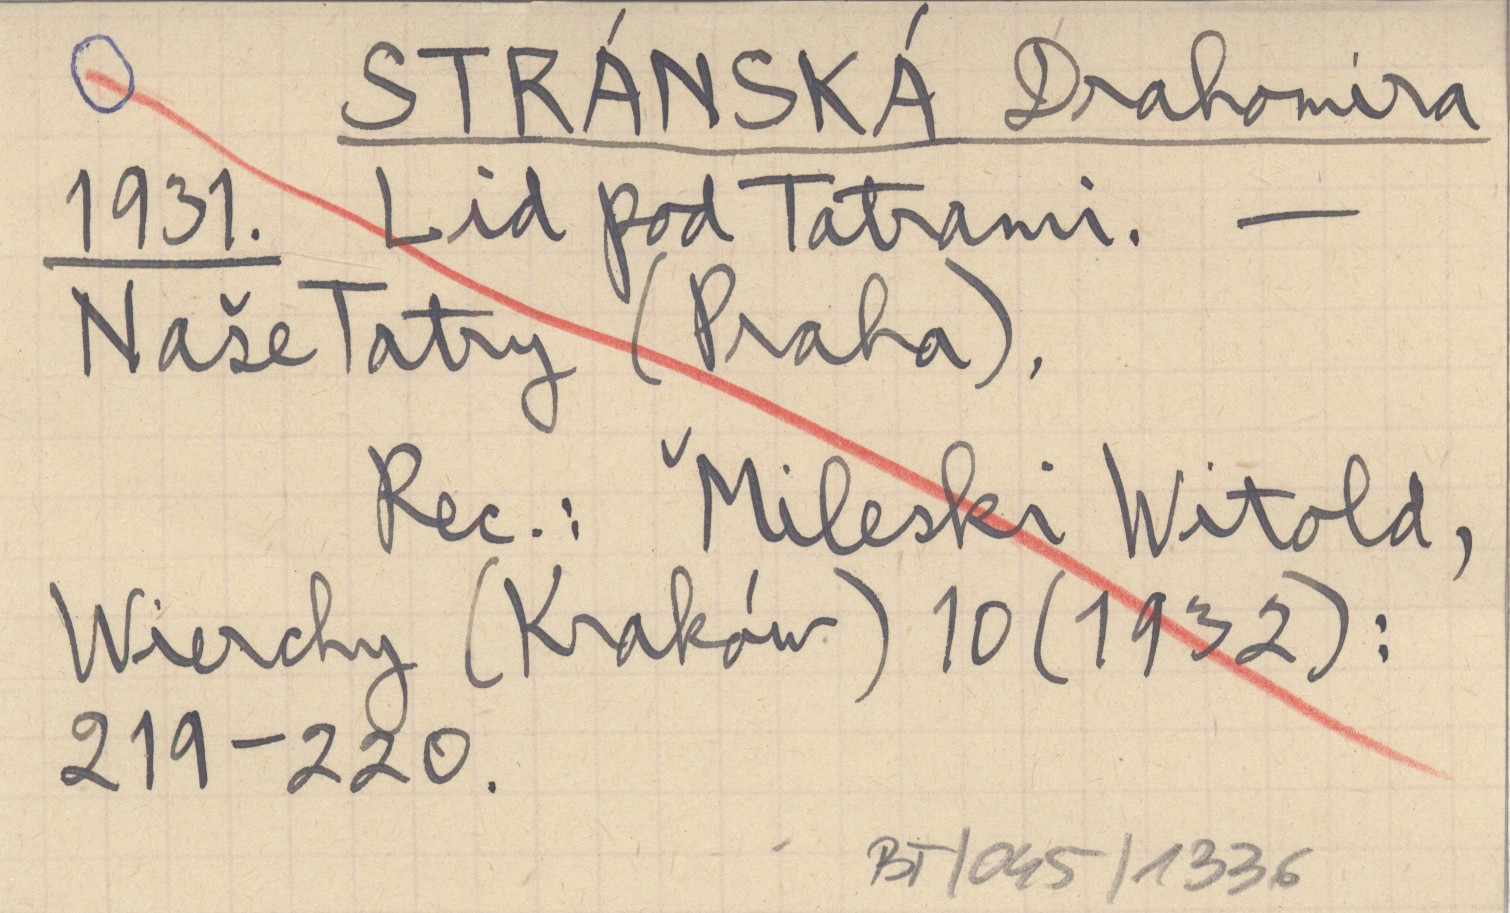 STRÁNSKÁ Drahomira
1931. Lid pod Tatrami. —
Naše Tatry (Praha),
Rec.: ˇMileski Witold,
Wierchy (Kraków) 10 (1932):
219-220.
BT/045/1336